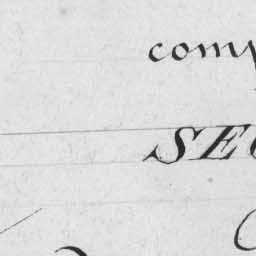 comp
SEC